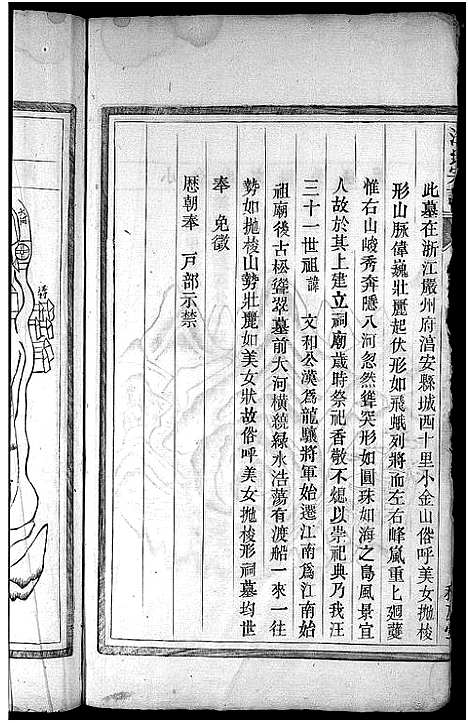 此墓在浙江嚴州府湻安縣城西十里小金山俗呼美女抛梭
形山脈偉巍壯麗起伏形如飛蛾列將而左右峰嵐重上廻護
惟右山峻秀奔隱入河忽然聳突形如圓珠如海之島風景宜
人故於其上建立祠廟歲時祭祀香散不熄以崇祀典乃我汪
三十一世祖諱 文和公漢為龍驤將軍始遷江南為江南始
祖廟後古松聳翠墓前大河橫繞綠水浩蕩有渡船一來一往
勢如抛梭山勢壯麗如美女狀故俗呼美女抛梭形祠墓均世
奉 免徵
歷朝奉 戶部示禁